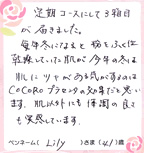 定期コースにして3箱目
が届きました。
毎年冬になると粉をふく位
乾燥していた肌が今年の冬は
肌にツヤがある気がするのは
CoCoRoプラセンタの効果だと思い
ます。肌以外にも体調の良さ
も実感しています。
ペンネーム( Lily )さま(41)歳